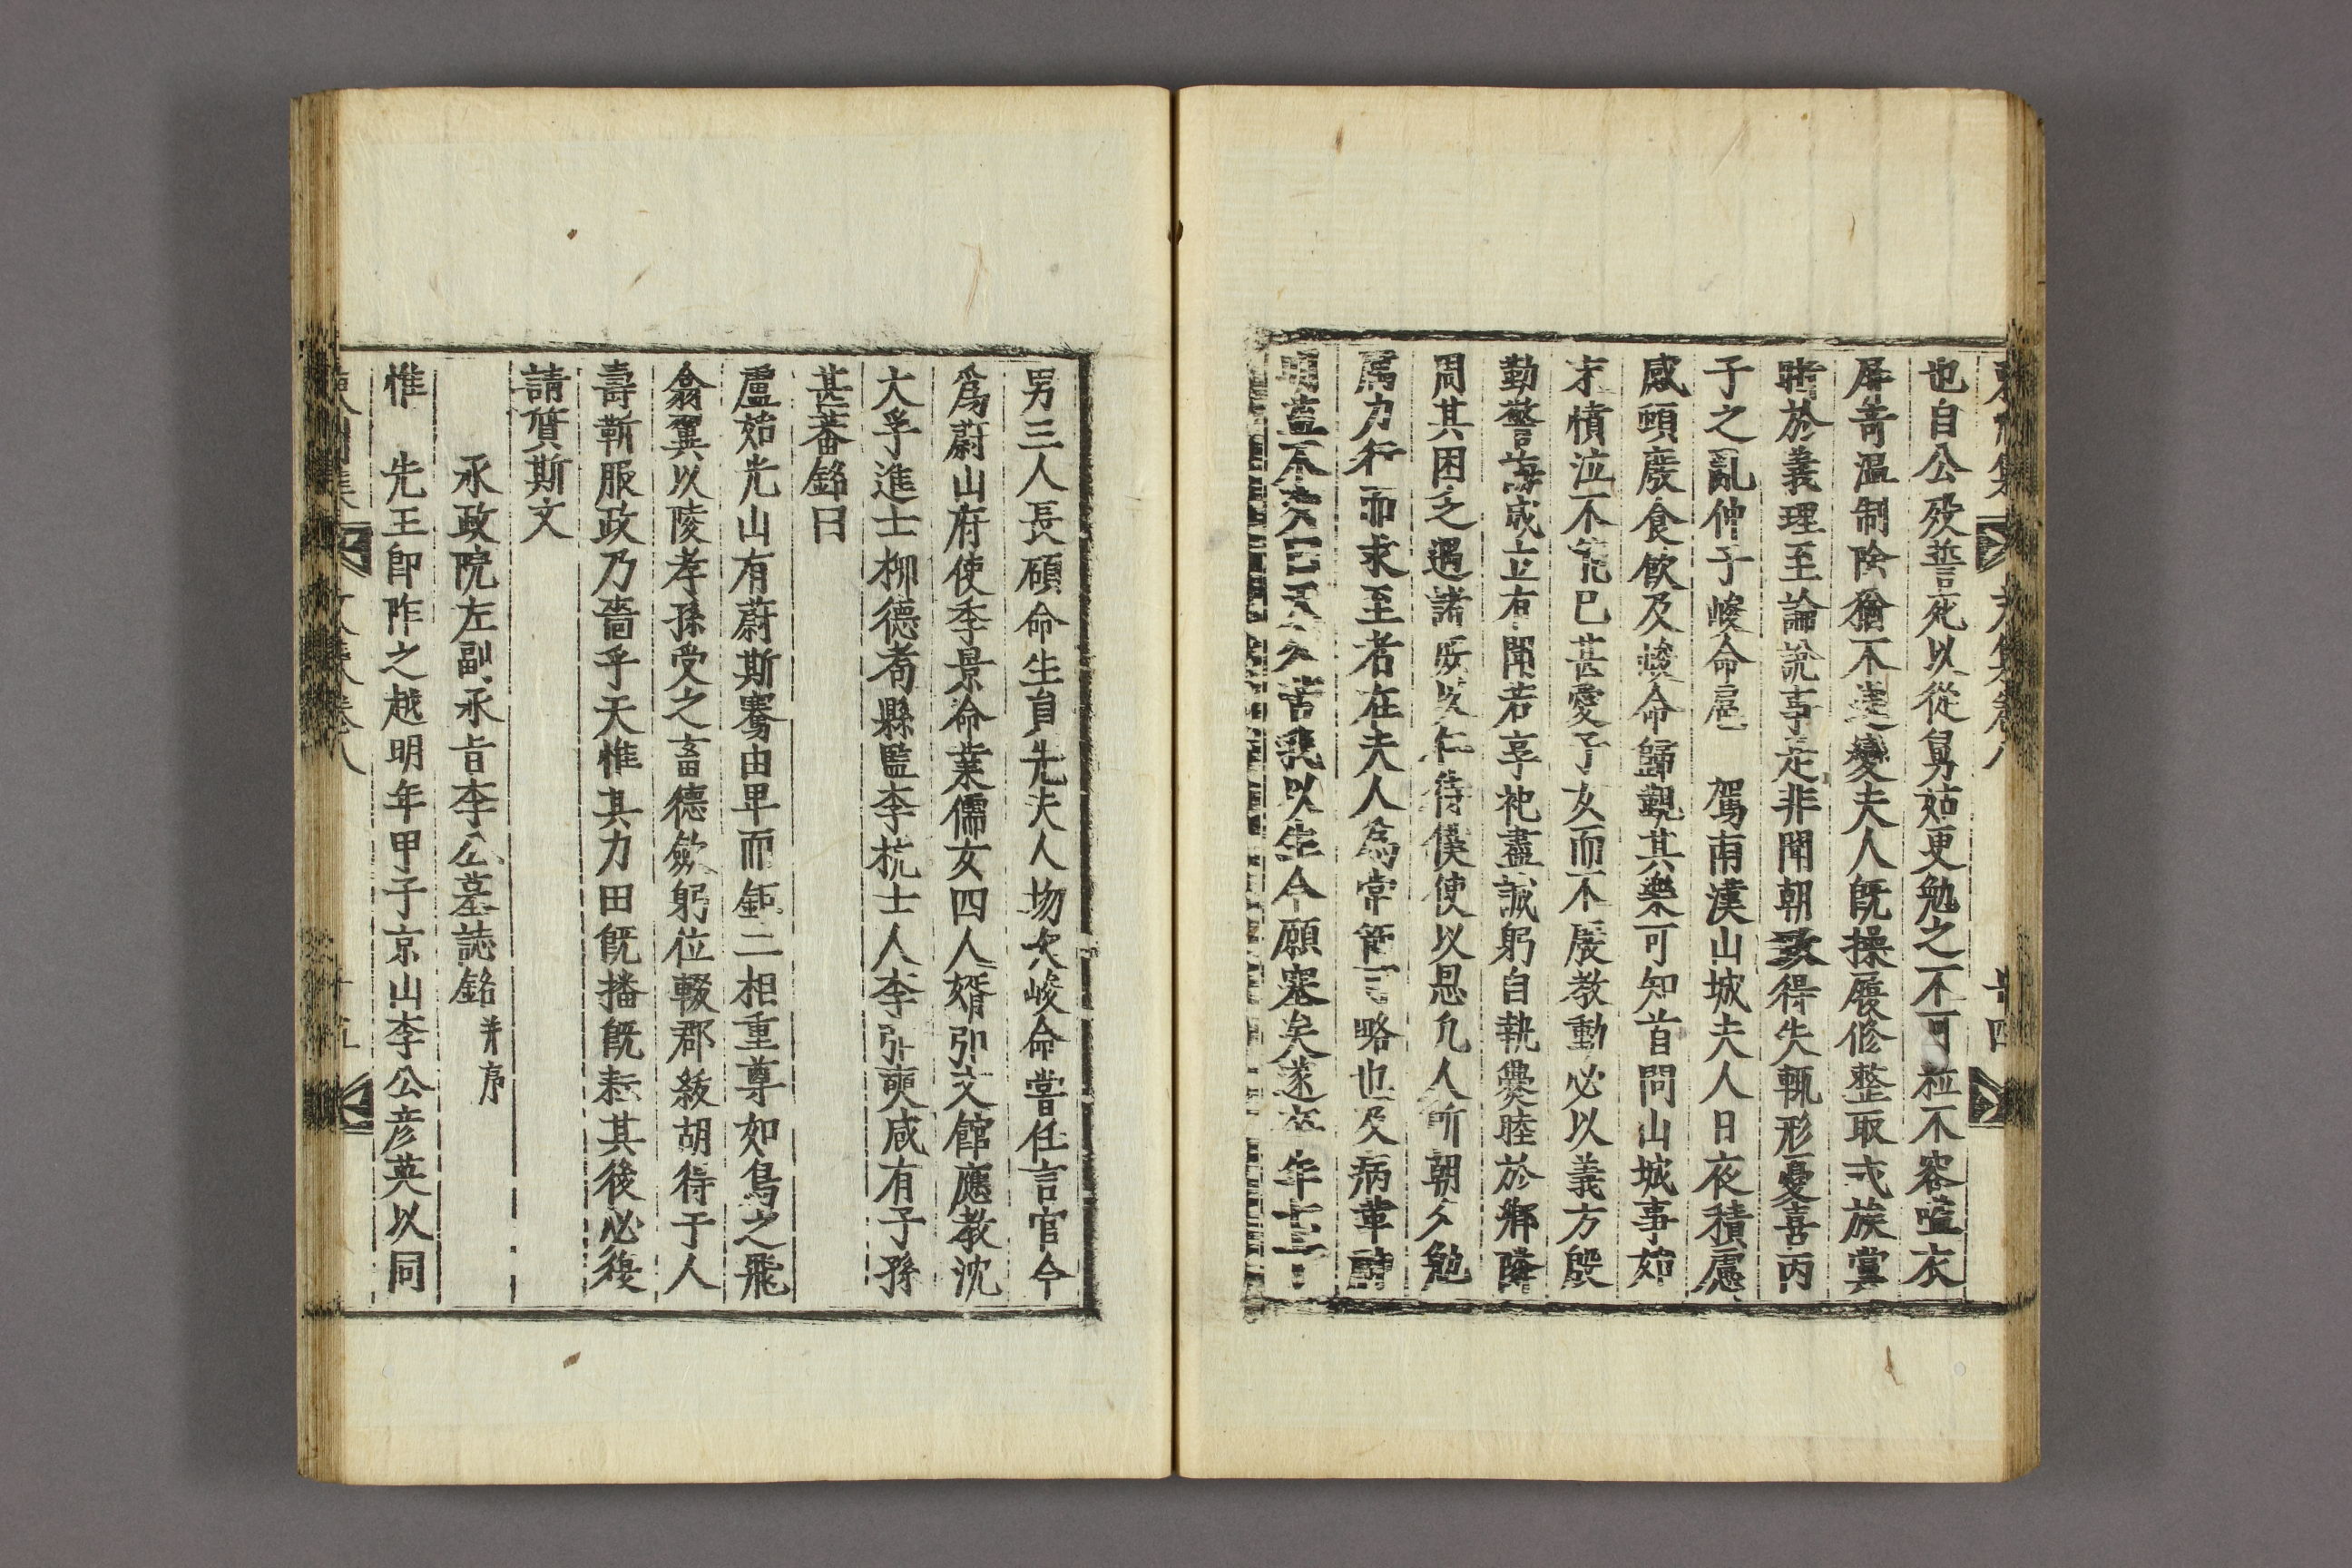 也自公歿誓死以從舅姑更勉之不可粒不容嗑衣
屏奇溫制除猶不變夫人旣操履修整取式族黨
晧於義理至論說事是非聞朝政得失輒形憂喜丙
子之亂仲子峻命扈 駕南漢山城夫人日夜積慮
感頭廢食飲及峻命歸觀其樂可知首問山城事茹
末憤泣不能已甚愛子女而不廢教動必以義方殷
勤警誨咸立有聞若享祀盡誠躬自執爨睦於鄕隣
周其困乏遇諸以仁待僕使以恩凡人所朝夕勉
爲力行而求至者在夫人爲常也及病革
苦我以生今願塞矣遂卒年七十三
男三人長碩命生員先夫人歿次峻命嘗任言官今
爲蔚山府使季景命業儒女四人婿弘文館應教沈
大孚進士柳德耈縣監李杭士人李弘奭咸有子孫
甚蕃銘曰
盧茹光山有蔚斯騫由卑而鉅二相重尊如鳥之飛
翕翼以陵孝孫受之畜德斂躬位輟郡紱胡得于人
壽靳服政乃嗇乎天惟其力田旣播旣耘其後必復
請質斯文
承政院左副承旨李公墓誌銘 幷序
惟 先王卽阼之越明年甲子京山李公彥英以同
文集卷八